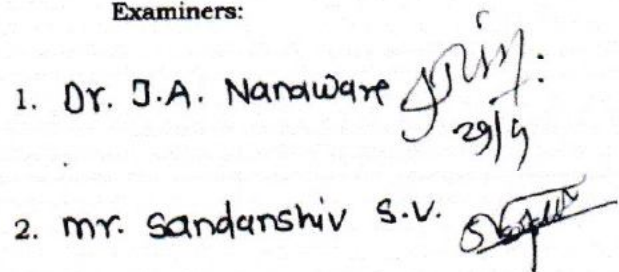 Examiners:
1. Dr. J.A. Nanaware
29/9
2. mr. Sandanshiv S.V.